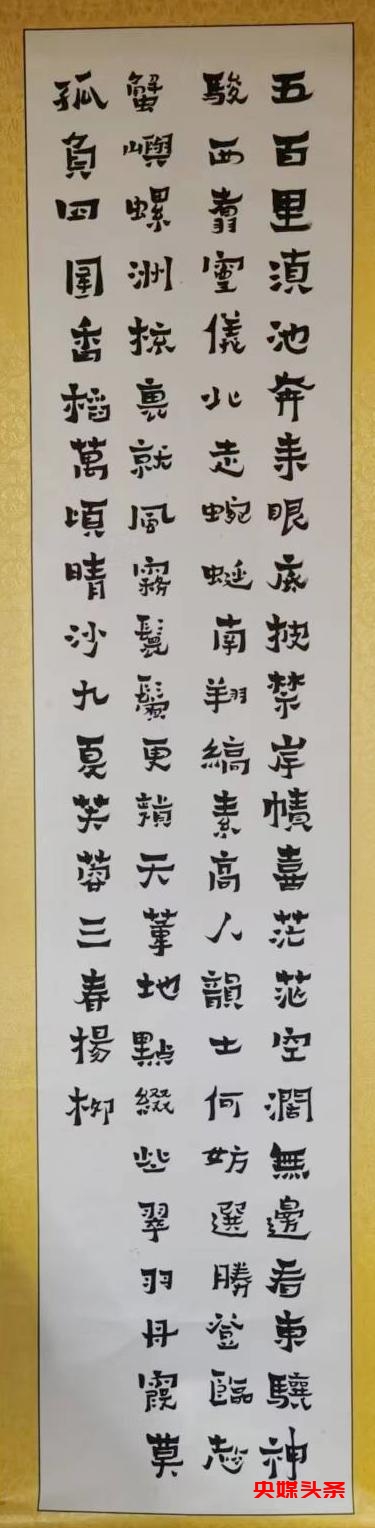 五百里滇池奔来眼底披禁岸幘喜茫茫空濶無邊看東驤神
駿西翥靈儀北走蜿蜒南翔縞素高人韻士何妨選勝登臨趂
蟹嶼螺洲掠裹就風霧鬟鬢更蘋天葦地點綴些翠羽丹霞莫
孤負四圍香稻萬頃晴沙九夏芙蓉三春楊柳
央媒头条